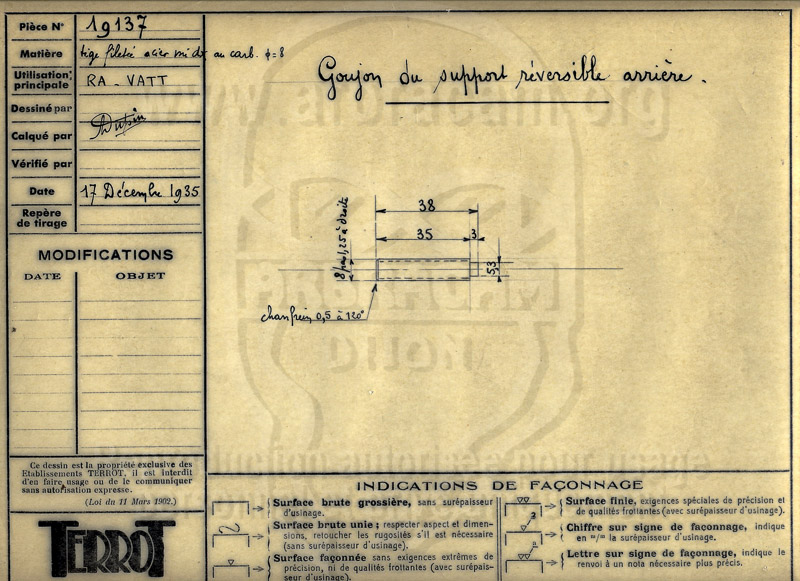 Pièce N° 19137
Matière tige filetée acier mi dr au carb. φ=8
Utilisation principale RA - VATT
Dessiné par
Calqué par
Vérifié par
Date 17 Décembre 1935
Repère de tirage
MODIFICATIONS
DATE OBJET
Ce dessin est la propriété exclusive des
Etablissements TERROT, il est interdit
d'en faire usage ou de le communiquer
sans autorisation expresse.
(Loi du 11 Mars 1902.)
TERROT
Goujon du support réversible arrière.
38
35
3
8 pas 1,25 à droite
5,3
chanfrein 0,5 à 120°
INDICATIONS DE FAÇONNAGE
Surface brute grossière, sans surépaisseur
d'usinage.
Surface brute unie ; respecter aspect et dimen-
sions, retoucher les rugosités s'il est nécessaire
(sans surépaisseur d'usinage).
Surface façonnée sans exigences extrêmes de
précision, ni de qualités frottantes (avec surépais-
seur d'usinage).
Surface finie, exigences spéciales de précision et
de qualités frottantes (avec surépaisseur d'usinage).
Chiffre sur signe de façonnage, indique
en m/m la surépaisseur d'usinage.
Lettre sur signe de façonnage, indique le
renvoi à un nota nécessaire plus précis.